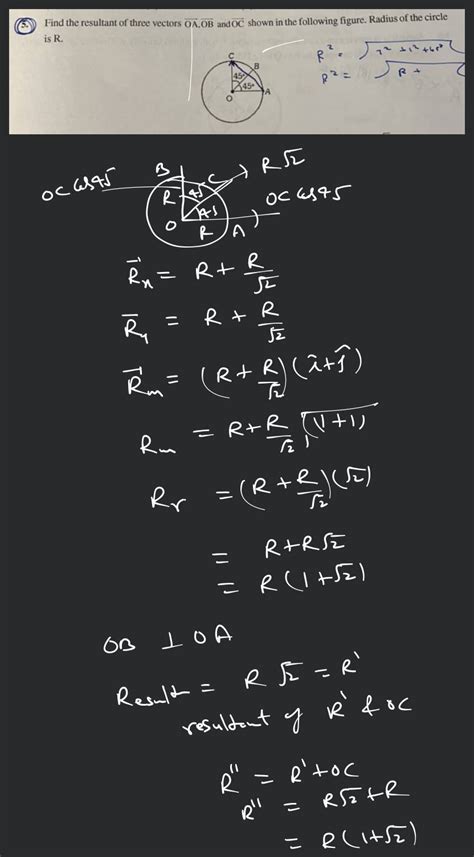 5. Find the resultant of three vectors OA, OB and OC shown in the following figure. Radius of the circle
is R.
R² = √r² + r² + 6r²
R² = √R +
C
B
45°
45°
O
A
B
C
R√2
OC cos 45
R
45
OC cos 45
O
45
R
A
R⃗x = R + R/√2
R⃗y = R + R/√2
R⃗m = (R + R/√2)(î + ĵ)
Rm = R + R/√2 √(1+1)
Rr = (R + R/√2)(√2)
= R + R√2
= R(1+√2)
OB ⊥ OA
Result = R√2 = R'
resultant of R' & OC
R" = R' + OC
R" = R√2 + R
= R(1+√2)